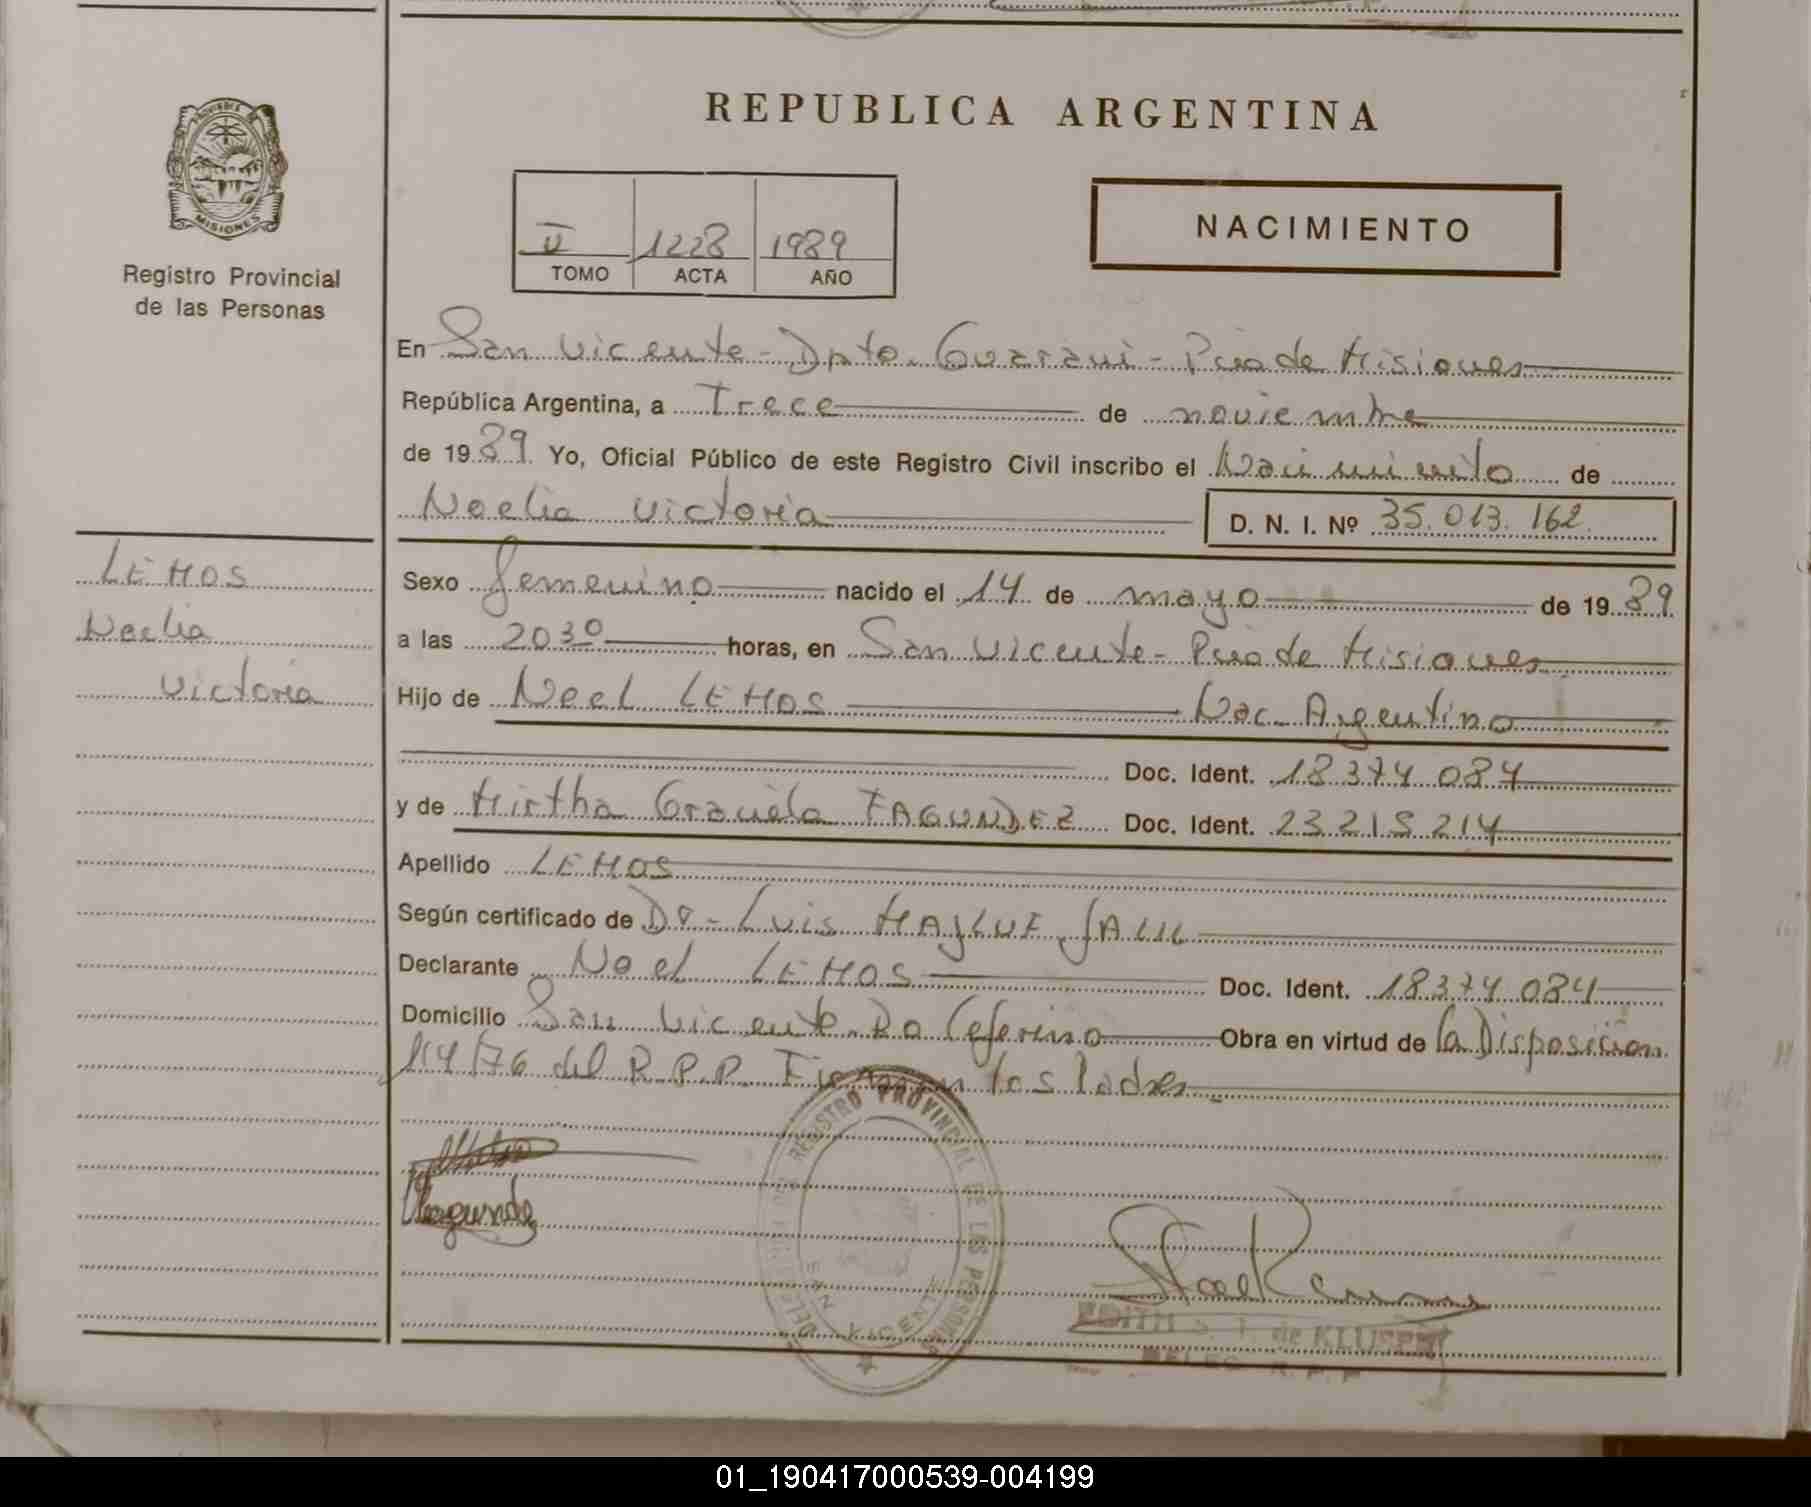 REPUBLICA ARGENTINA
PROVINCIA DE
MISIONES
Registro Provincial
de las Personas
II 1228 1989
TOMO ACTA AÑO
NACIMIENTO
En San Vicente - Dpto. Guaraní - Pcia de Misiones
República Argentina, a Trece de noviembre
de 1989 Yo, Oficial Público de este Registro Civil inscribo el Nacimiento de
Noelia Victoria D. N. I. Nº 35.013.162
LEMOS
Noelia
Victoria
Sexo femenino nacido el 14 de mayo de 1989
a las 2030 horas, en San Vicente - Pcia de Misiones
Hijo de Noel LEMOS Nac. Argentino
Doc. Ident. 18374084
y de Mirtha Graciela FAGUNDEZ Doc. Ident. 23215214
Apellido LEMOS
Según certificado de Dr. Luis SALIL
Declarante Noel LEMOS Doc. Ident. 18374084
Domicilio San Vicente Bo Ceferino Obra en virtud de la Disposición
114/76 del R.P.P. Firman los Padres
REGISTRO PROVINCIAL DE LAS PERSONAS
SAN VICENTE
EDITH de KLUSEN
DELEG. R. P. P.
01_190417000539-004199